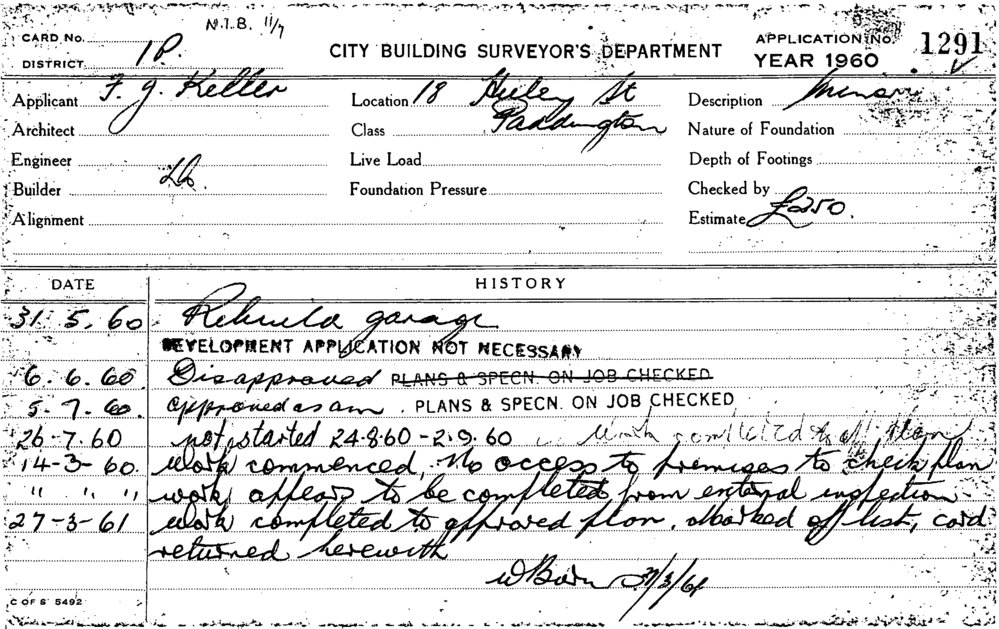 N.I.B. 11/7
CARD No.
DISTRICT 1P.
CITY BUILDING SURVEYOR'S DEPARTMENT
APPLICATION No. 1291
YEAR 1960
Applicant F. J. Keller
Location 18 St
Paddington
Description
Architect
Class
Nature of Foundation
Engineer
Live Load
Depth of Footings
Builder
Foundation Pressure
Checked by
Alignment
Estimate £250.
DATE HISTORY
31. 5. 60 Rebuild garage
DEVELOPMENT APPLICATION NOT NECESSARY
6. 6. 60 Disapproved PLANS & SPECN. ON JOB CHECKED
5. 7. 60. approved as am. PLANS & SPECN. ON JOB CHECKED
26-7.60 not started 24-8.60-2.9.60 Work completed to plan
14-3-60 Work commenced, No access to premises to check plan
" " " work appears to be completed from external inspection
27-3-61 Work completed to approved plan. Marked off list, card
returned herewith
C OF S 5492